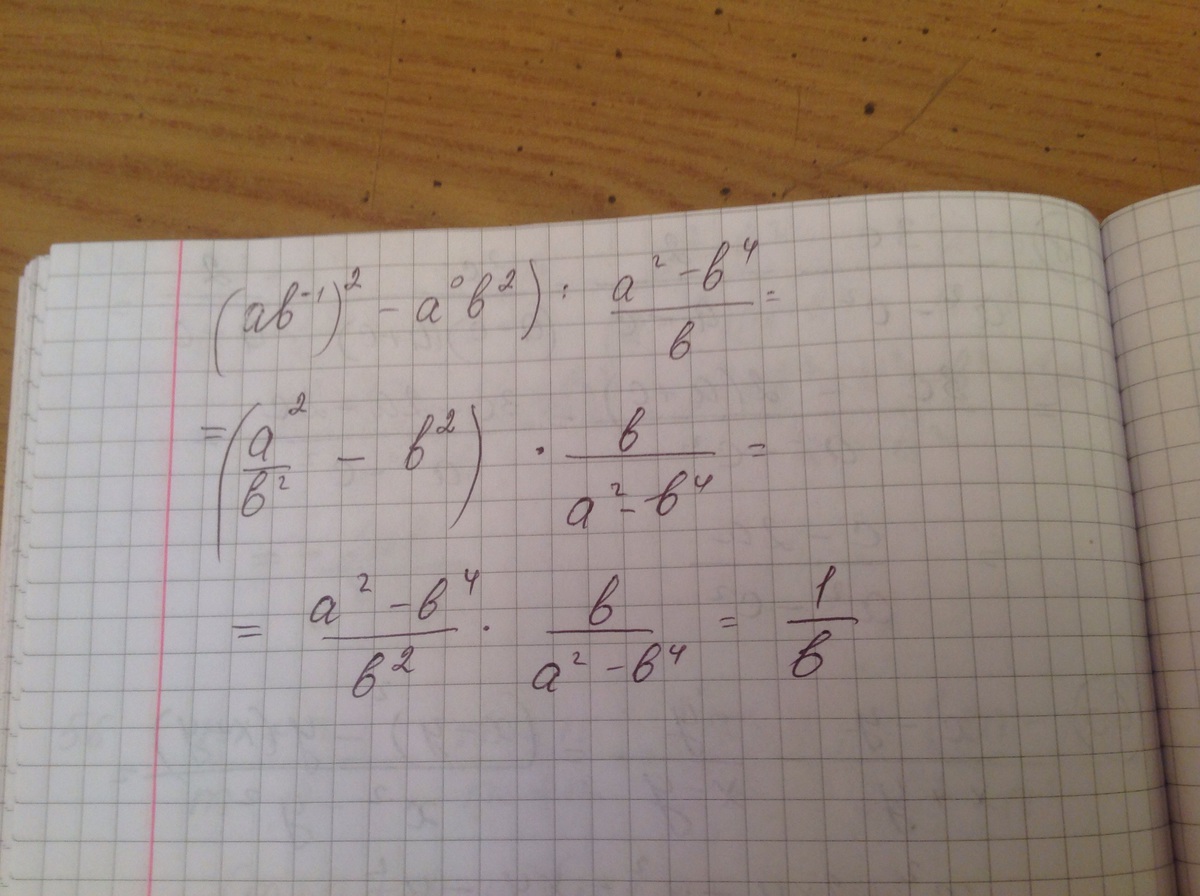 (ab⁻¹)² - a⁰b²) : (a² - b⁴)/b =
= (a²/b² - b²) · b/(a² - b⁴) =
= (a² - b⁴)/b² · b/(a² - b⁴) = 1/b